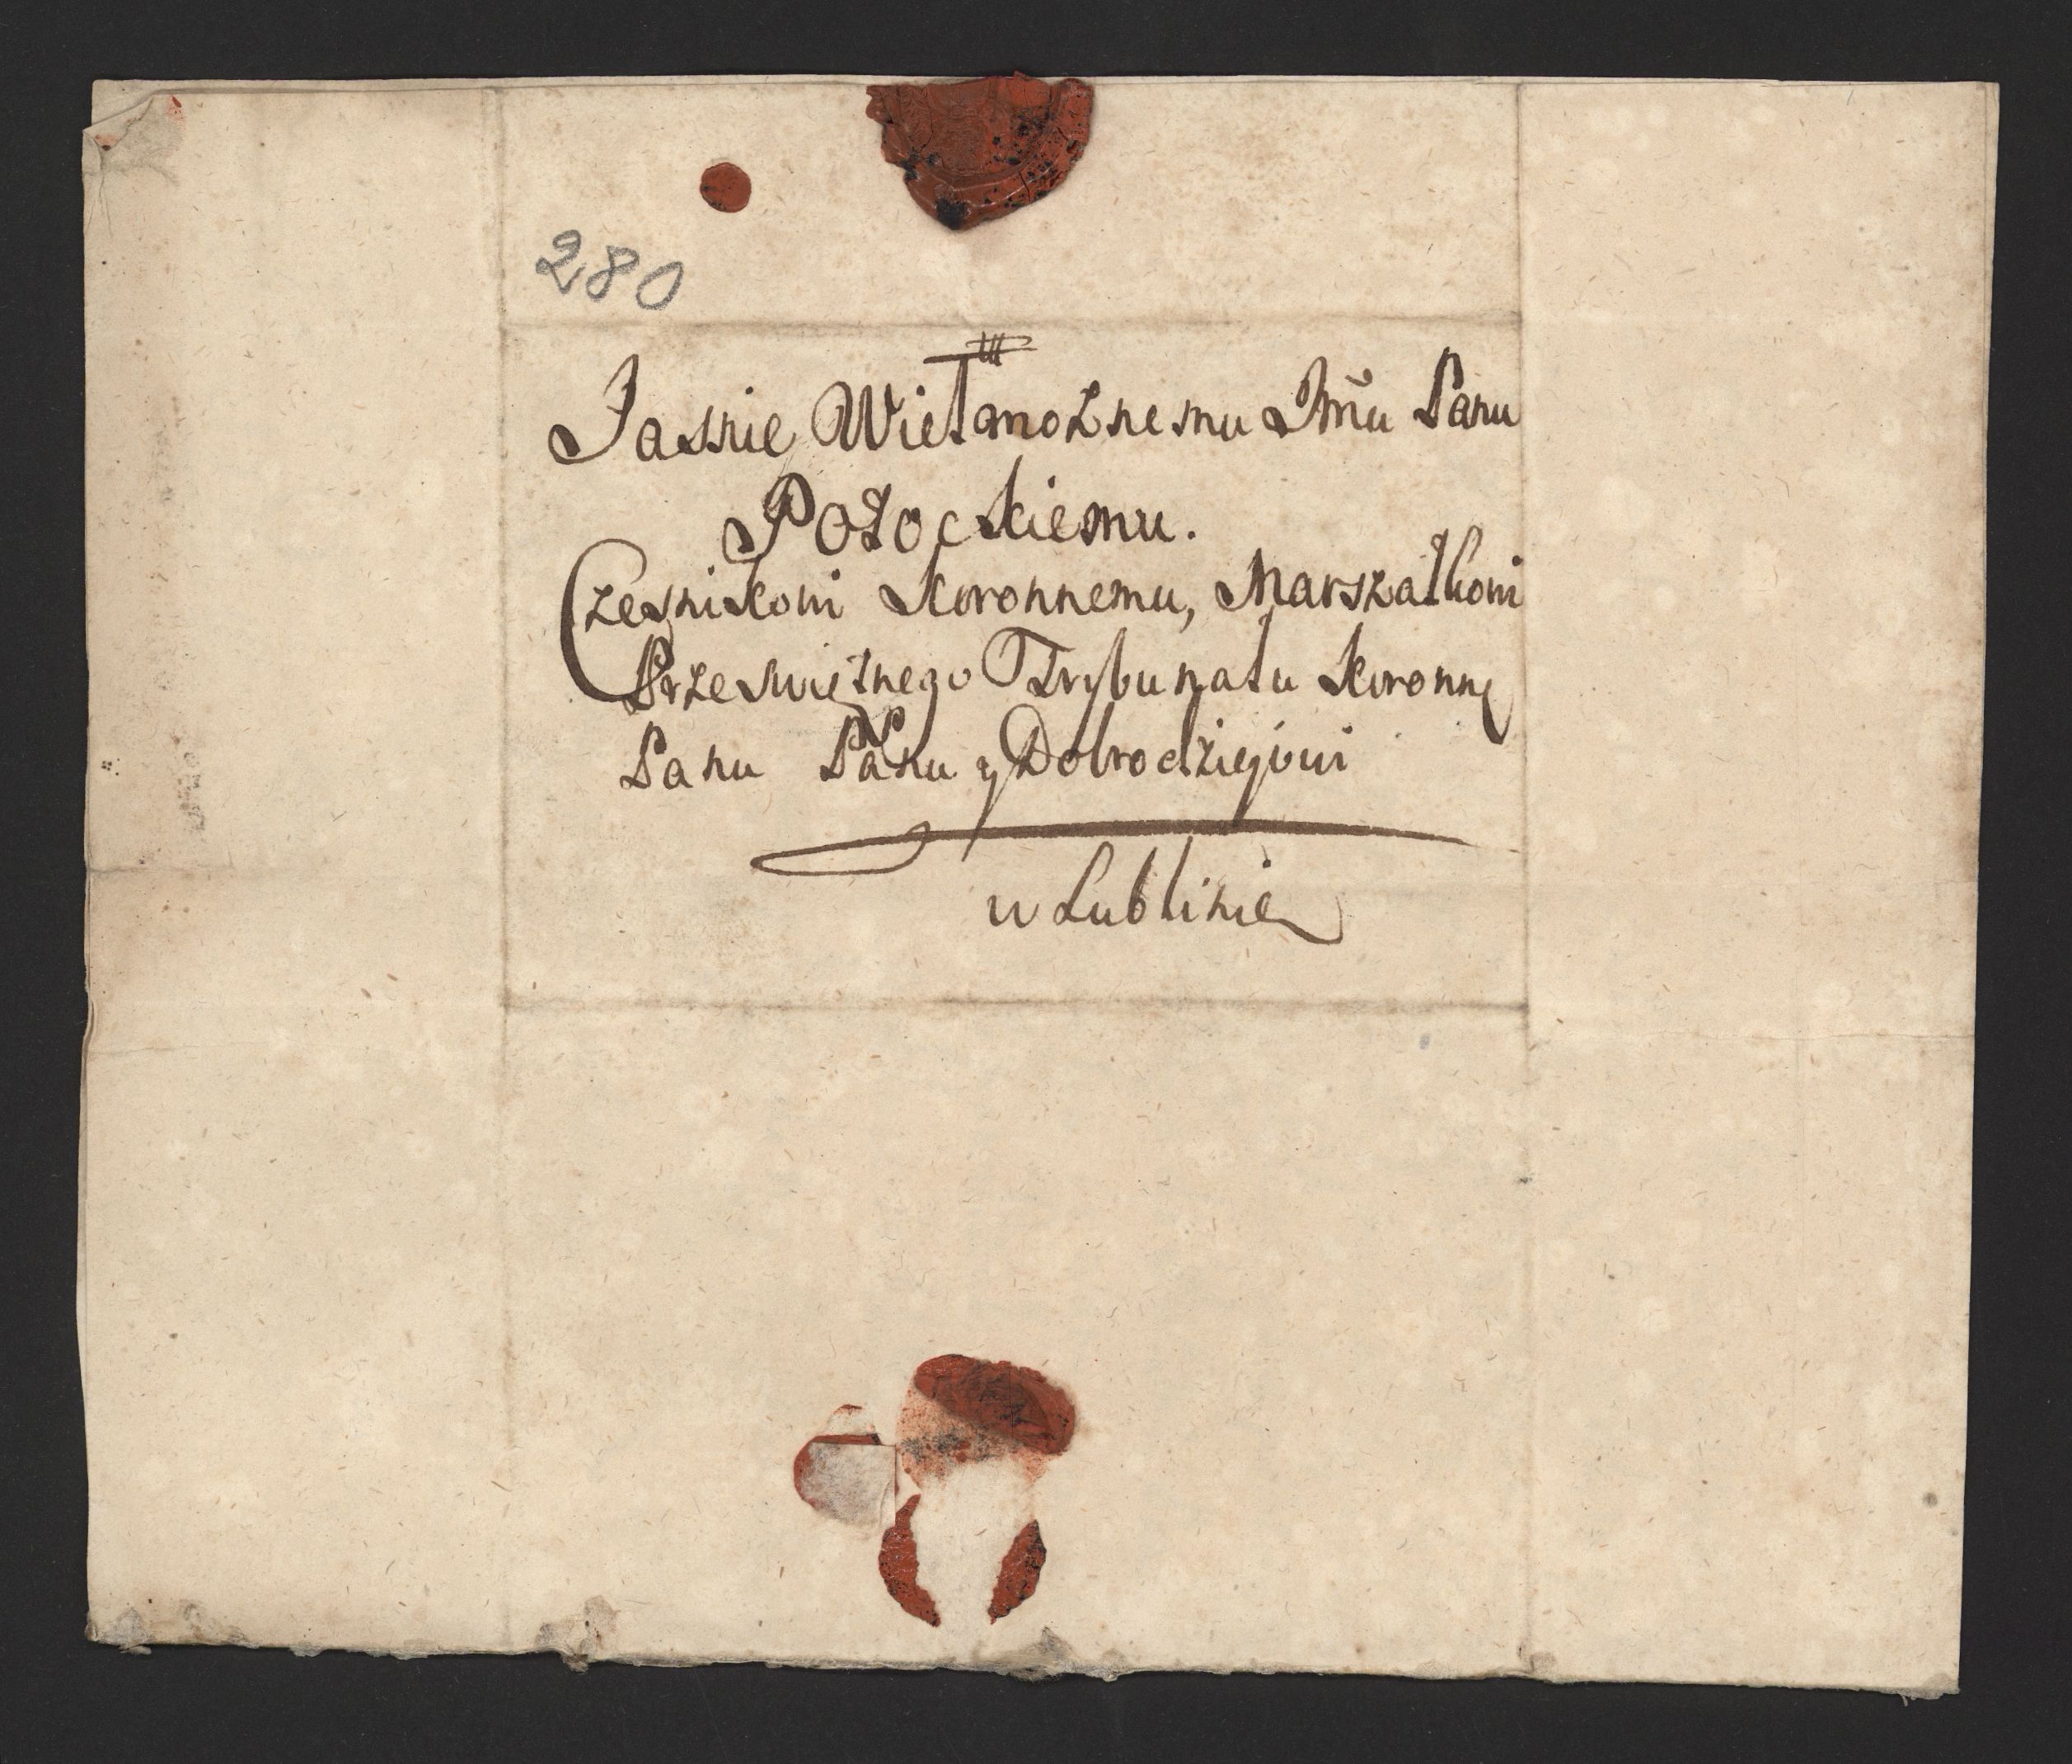 280
Jasnie Wielmoznemu Jmu Panu
Potockiemu.
Czesnikowi Koronnemu, Marszałkowi
Przeswietnego Trybunału Koronne
Panu Panu y Dobrodzieiowi
w Lublinie